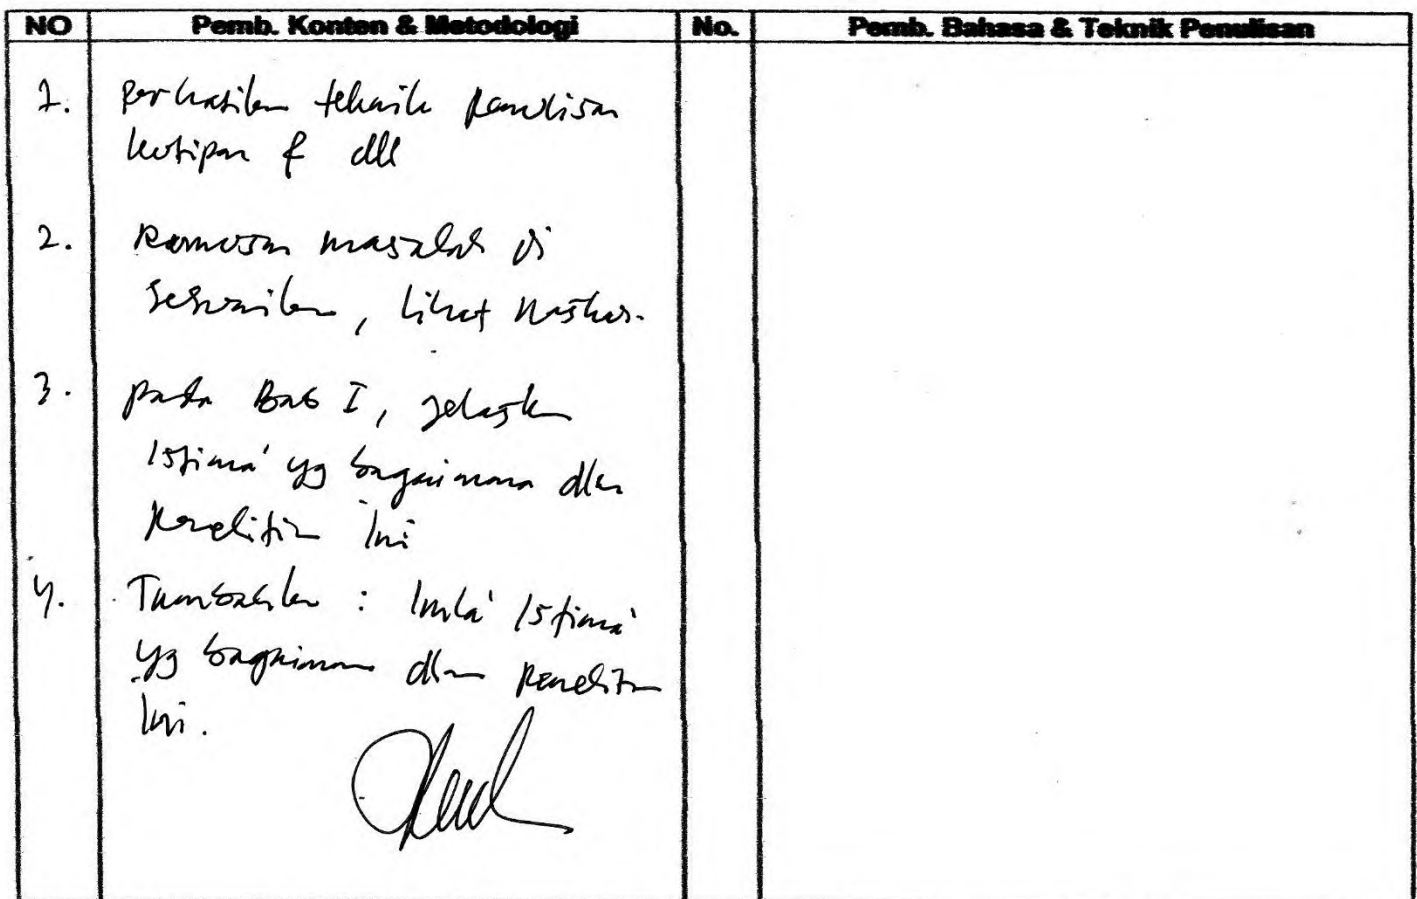 NO Pemb. Konten & Metodologi No. Pemb. Bahasa & Teknik Penulisan
1. Perhatikan teknik penulisan
kutipan & dll
2. Rumusan masalah di
sesuaikan, lihat naskah.
3. pada Bab I, jelaskan
Istima' yg bagaimana dlm
penelitian ini
4. Tambahkan : Imla' Istima'
yg bagaimana dlm penelitian
ini.